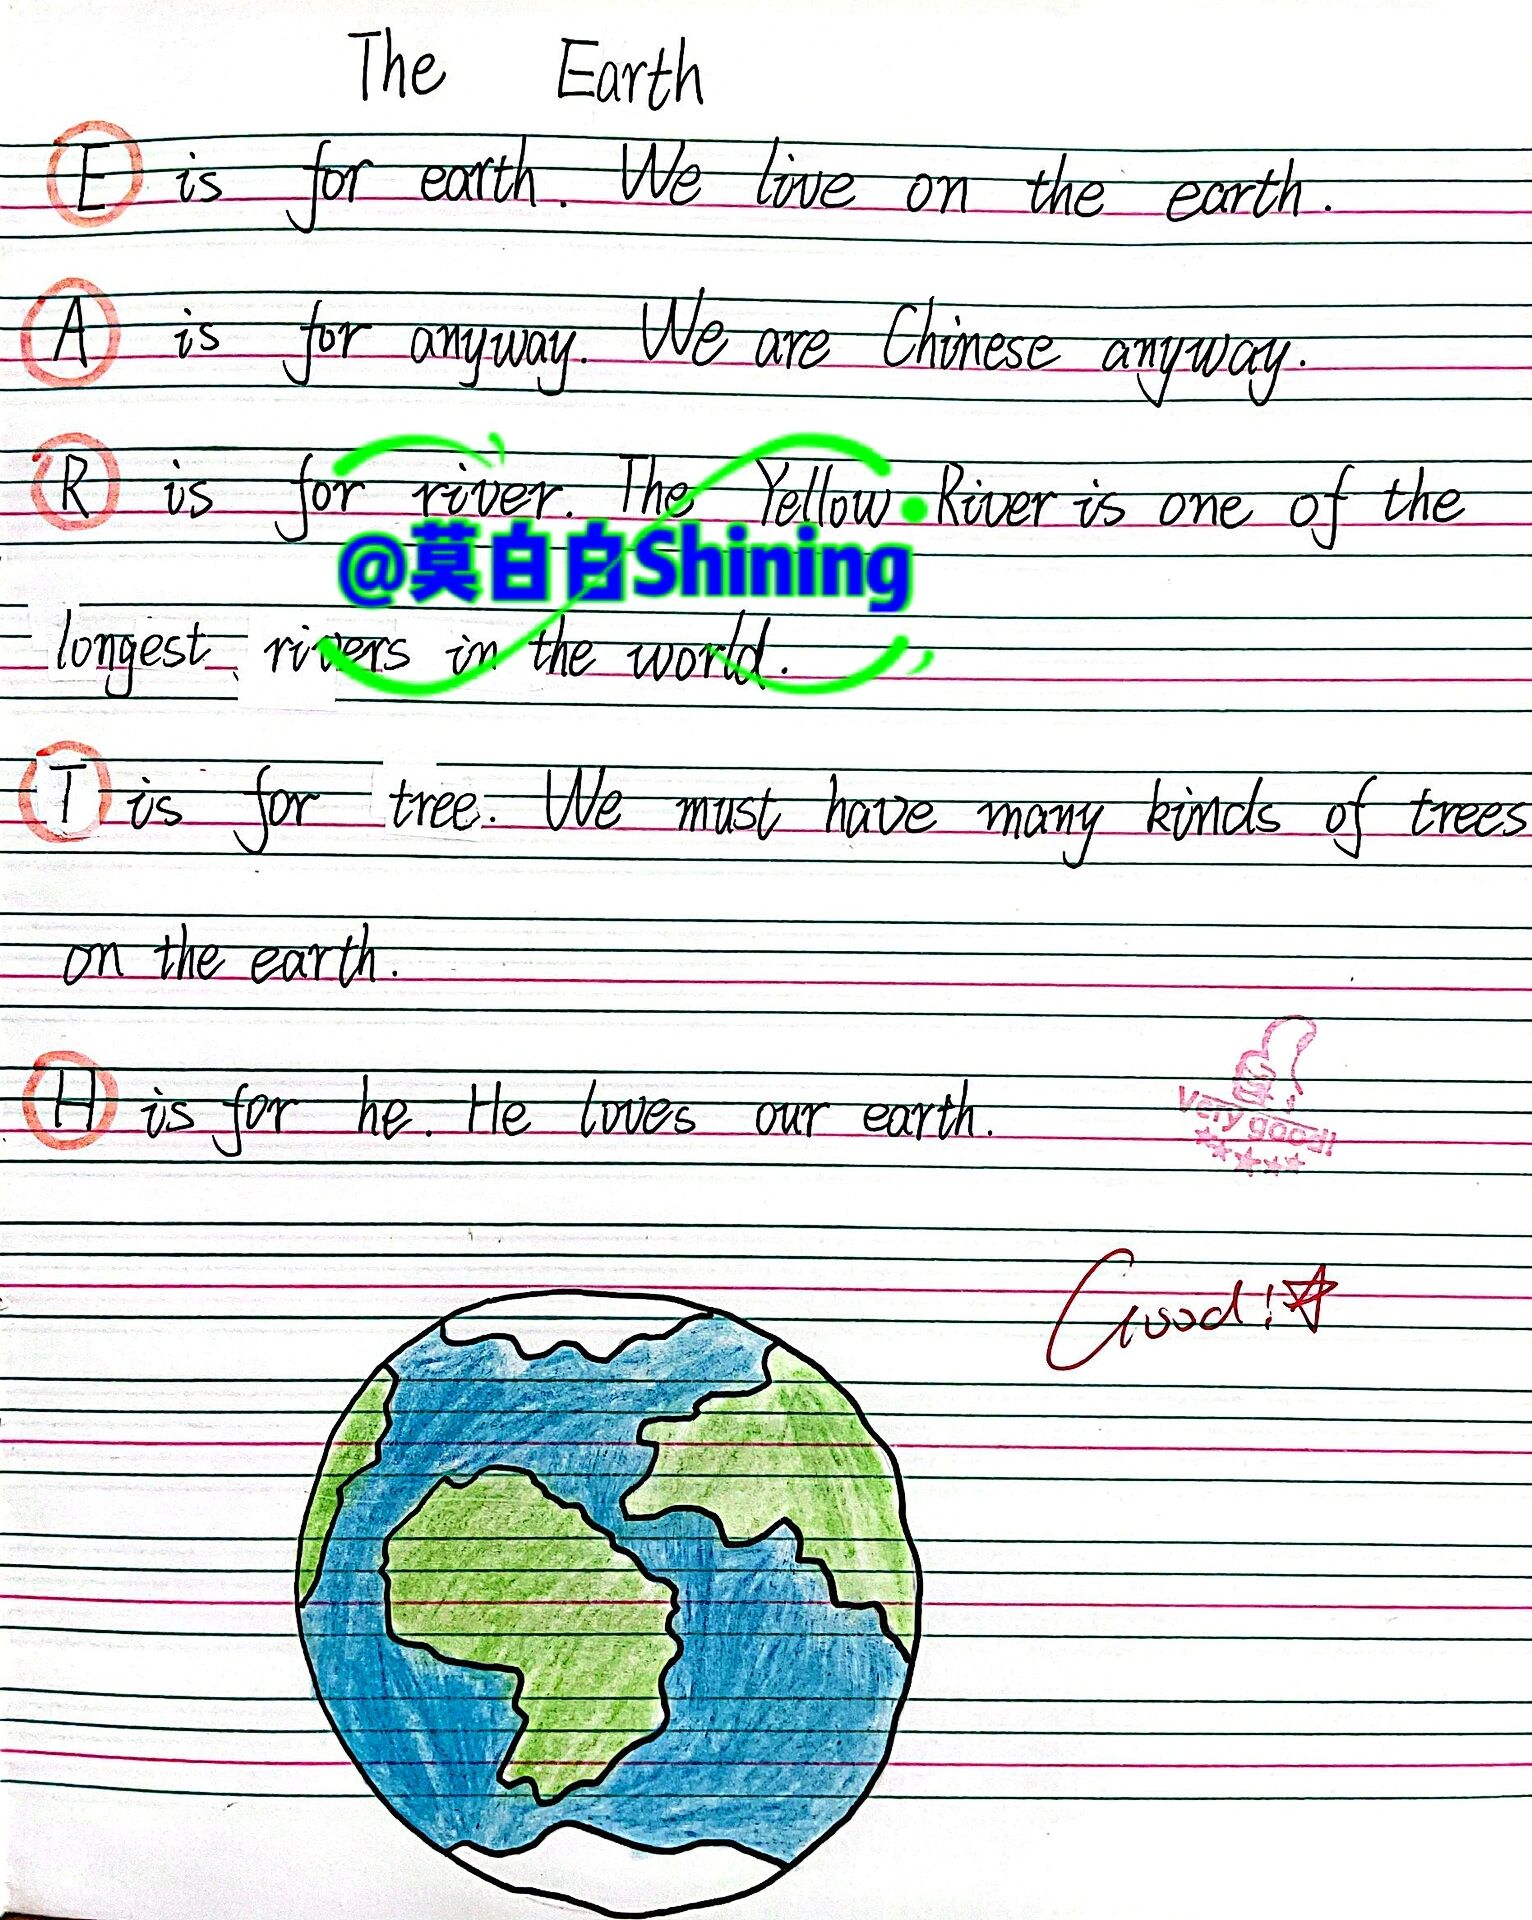 The Earth
E is for earth. We live on the earth.
A is for anyway. We are Chinese anyway.
R is for river. The Yellow River is one of the
@莫白白Shining
longest rivers in the world.
T is for tree. We must have many kinds of trees
on the earth.
H is for he. He loves our earth.
Very good!
Good!